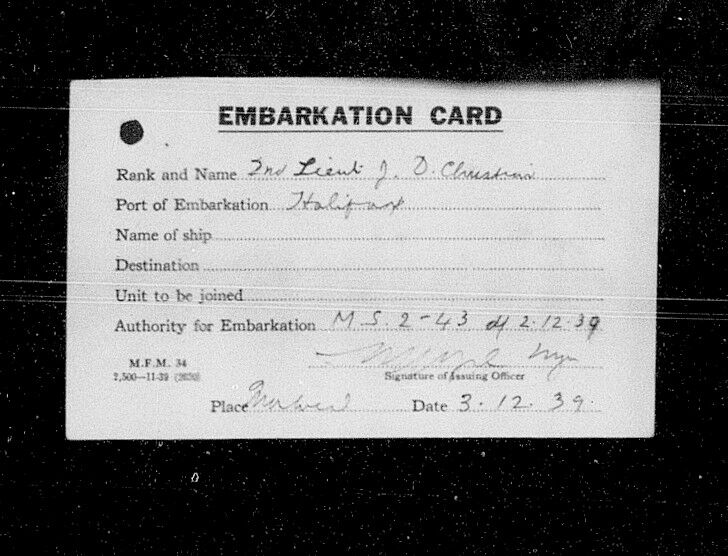 EMBARKATION CARD
Rank and Name 2nd Lieut J. D. Christian
Port of Embarkation Halifax
Name of ship
Destination
Unit to be joined
Authority for Embarkation M.S. 2-43 d/ 2.12.39
M.F.M. 34
2,500—11-39 (2620)
Signature of Issuing Officer
Place Montreal Date 3.12.39.